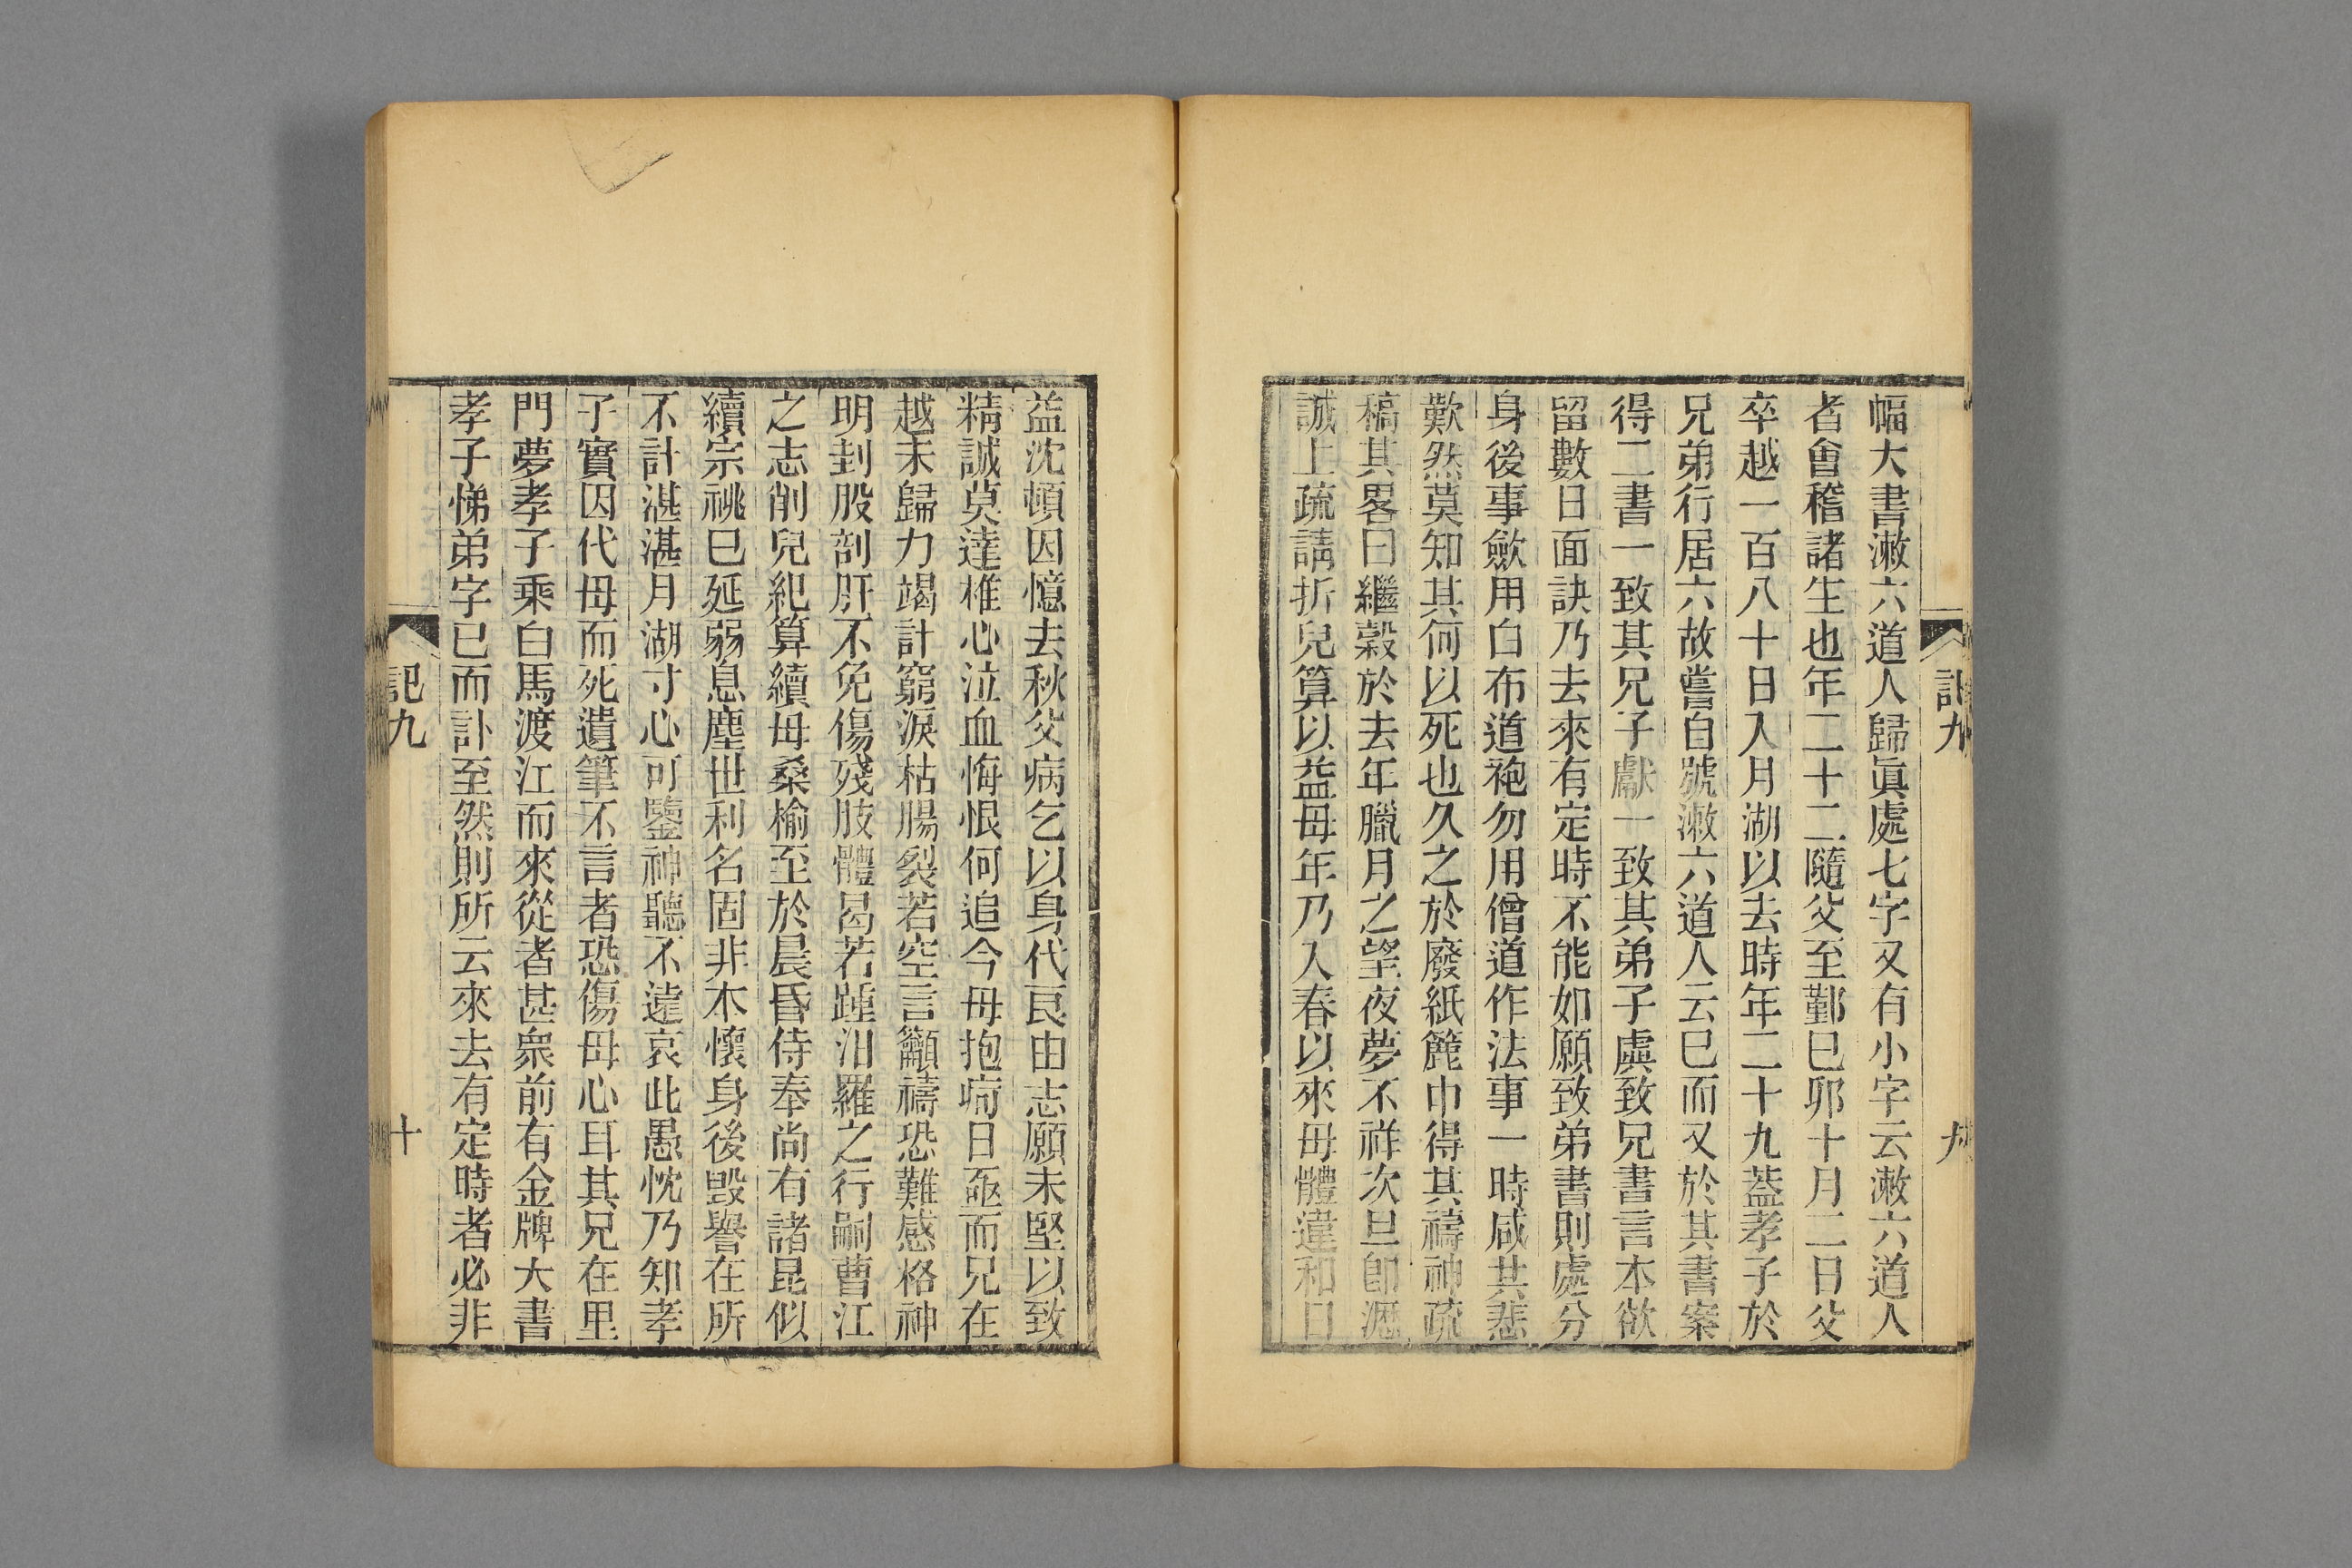 幅大書潄六道人歸眞處七字又有小字云潄六道人
者會稽諸生也年二十二隨父至鄞巳卯十月二日父
卒越一百八十日入月湖以去時年二十九葢孝子於
兄弟行居六故嘗自號潄六道人云巳而又於其書案
得二書一致其兄子獻一致其弟子虞致兄書言本欲
留數日面訣乃去來有定時不能如願致弟書則處分
身後事斂用白布道袍勿用僧道作法事一時咸共悲
歎然莫知其何以死也久之於廢紙簏中得其禱神疏
稿其畧曰繼穀於去年臘月之望夜夢不祥次旦卽瀝
誠上疏請折兒算以益母年乃入春以來母體違和日
記九
九
益沈頓因憶去秋父病乞以身代良由志願未堅以致
精誠莫達椎心泣血悔恨何追今母抱病日亟而兄在
越未歸力竭計窮淚枯腸裂若空言籲禱恐難感格神
明刲股剖肝不免傷殘肢體曷若踵汨羅之行嗣曹江
之志削兒紀算續母桑榆至於晨昏侍奉尚有諸昆似
續宗祧巳延弱息塵世利名固非本懷身後毁譽在所
不計湛湛月湖寸心可鑒神聽不遠哀此愚忱乃知孝
子實因代母而死遺筆不言者恐傷母心耳其兄在里
門夢孝子乘白馬渡江而來從者甚衆前有金牌大書
孝子悌弟字已而訃至然則所云來去有定時者必非
記九
十